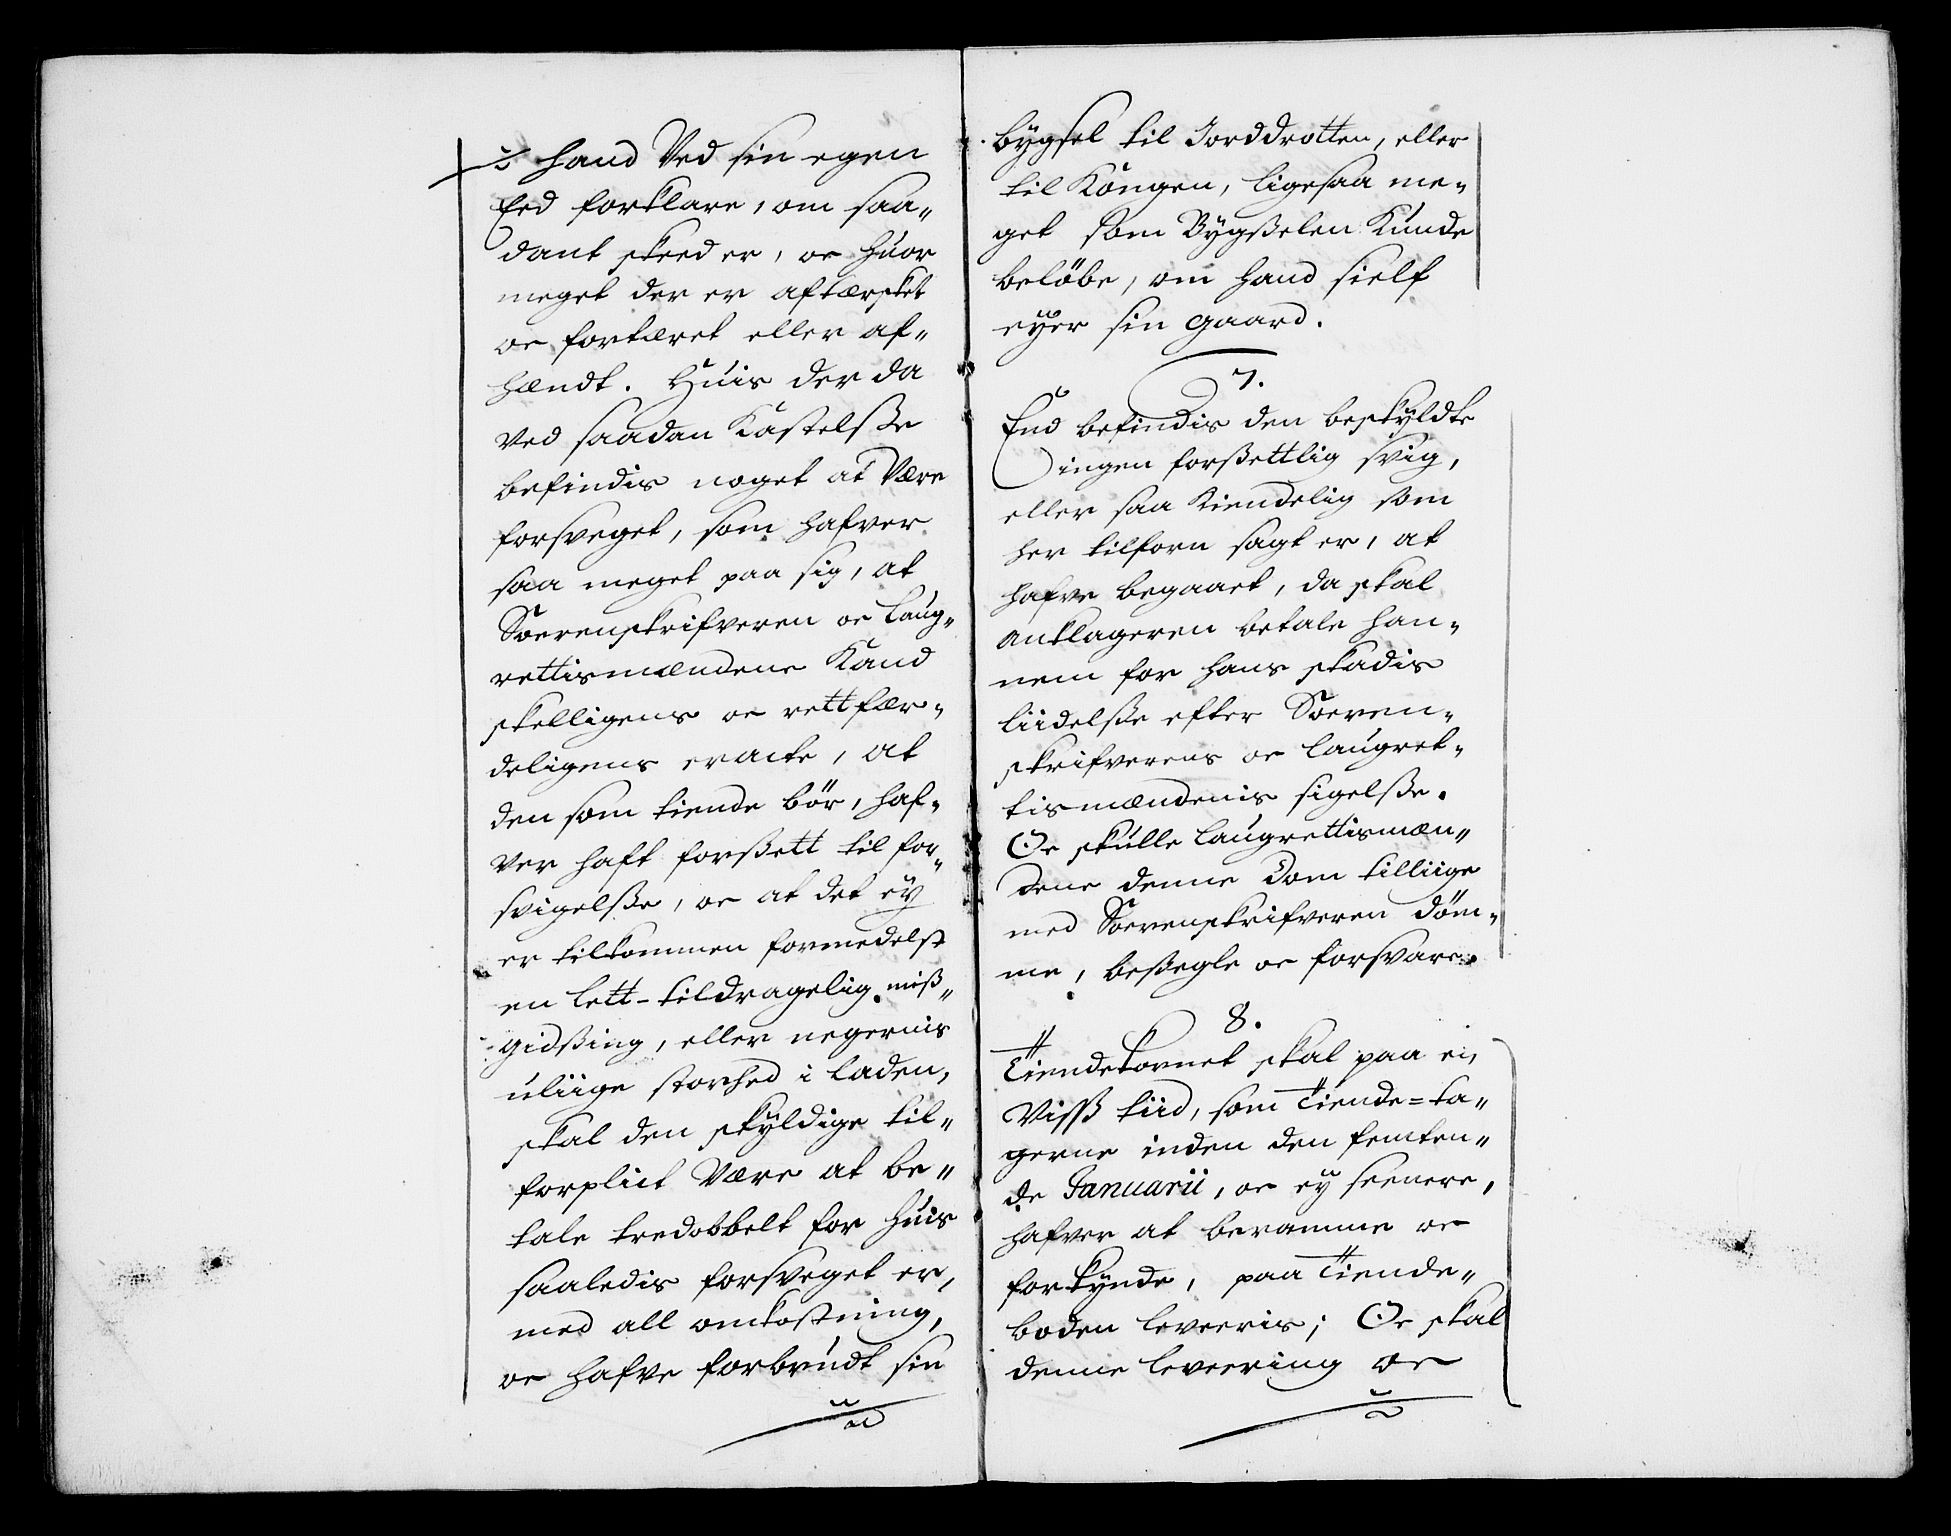 hand Ved sin egen
Eed forklare, om saa„
dant skeed er, oc huor
meget der er aftærsket
oc fortæret eller af„
hændt. Huis der da
ved saadan Kastelsße
befindis noget at Være
forsveget, som hafver
saa meget paa sig, at
Sorenskrifveren oc Laug„
rettismændene Kand
skelligens oc rettfær„
deligens eracte, at
den som tiende bör, haf„
ver haft forßett til for„
svigelsße, oc at det ey
er tilkommen formedelst
en lett-tildragelig miß„
gidßing, eller negernis
uliige storhed i laden,
skal den skyldige til„
forplict Være at be„
tale tredobbelt for huis
saaledis forsveget er,
med all omkostning,
oc hafve forbrudt sin
bygsel til Jorddrotten, eller
til Kongen, ligesaa me„
get som Bygßelen Kunde
beløbe, om hand sielf
eyer sin gaard.
7.
End befindis den beskyldte
ingen forßettlig svig,
eller saa Kiendelig som
her tilforn sagt er, at
hafve begaaet, da skal
anklageren betale han„
nem for hans skadis
liidelsße efter Soren„
skrifverens oc laugret„
tismændenis sigelsße.
Oc skulle laugrettismæn„
dene denne Dom tilliige
med Sorenskrifveren döm„
me, beßegle oc forsvare.
8.
Tiendekornet skal paa en
Visß tiid, som Tiende=ta„
gerne inden den femten„
de Januarii, oc ey seenere,
hafver at beramme oc
forkynde, paa Tiende„
boden leveeris; Oc skal
denne leveering oc